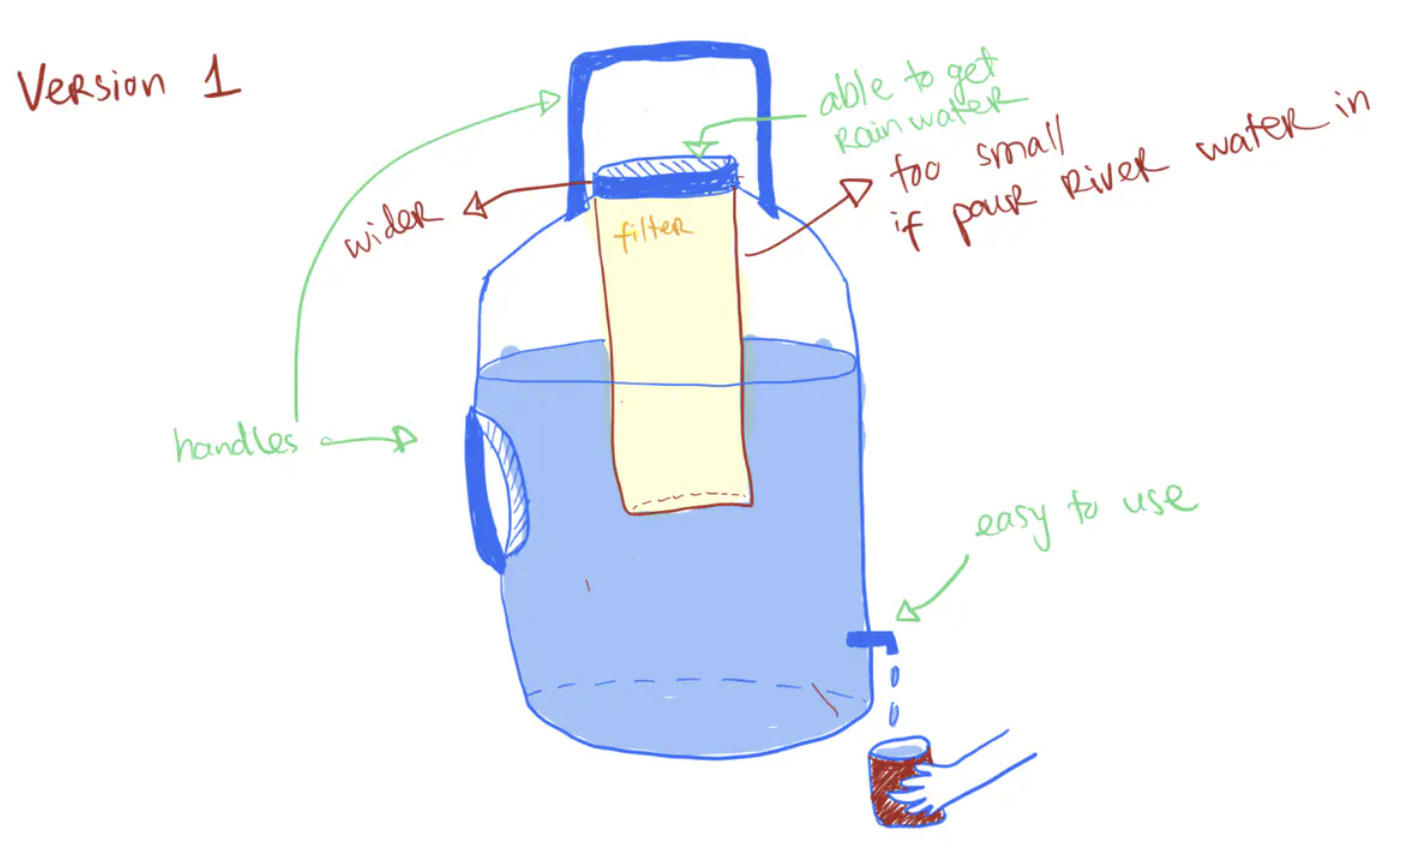 Version 1
able to get
rain water
too small
if pour River water in
wider
filter
handles
easy to use